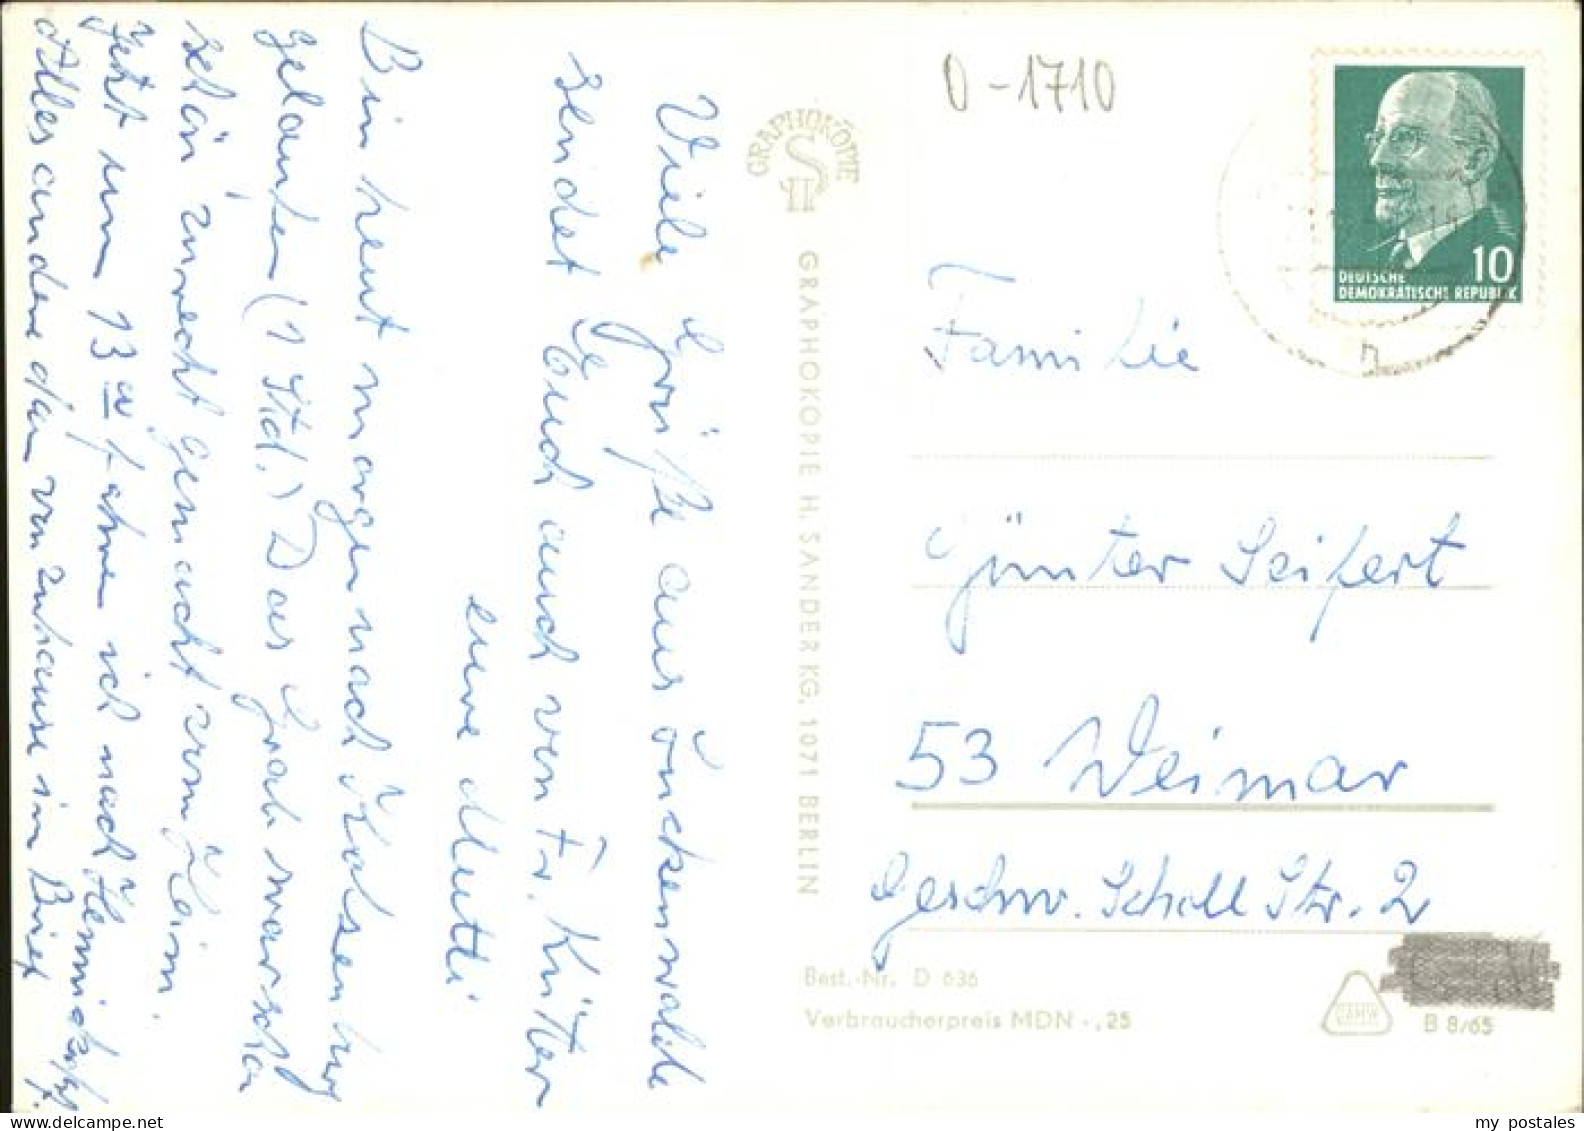 Viele Grüße aus Luckenwalde
sendet Euch auch von Fr. Küter
eure Mutti
Bin heut morgen nach
gelaufen (1 Std.) Das Grab war schon
schön zurecht gemacht vom Heim.
Jetzt um 13 fahre ich nach
Alles andere dann von zuhause im Brief
GRAPHOKOPIE
H S
GRAPHOKOPIE H. SANDER KG, 1071 BERLIN
D-1710
10
DEUTSCHE
DEMOKRATISCHE REPUBLIK
Familie
Günter Seifert
53 Weimar
Geschw. Scholl Str. 2
Best.-Nr. D 636
Verbraucherpreis MDN -,25
B 8/65
my postales